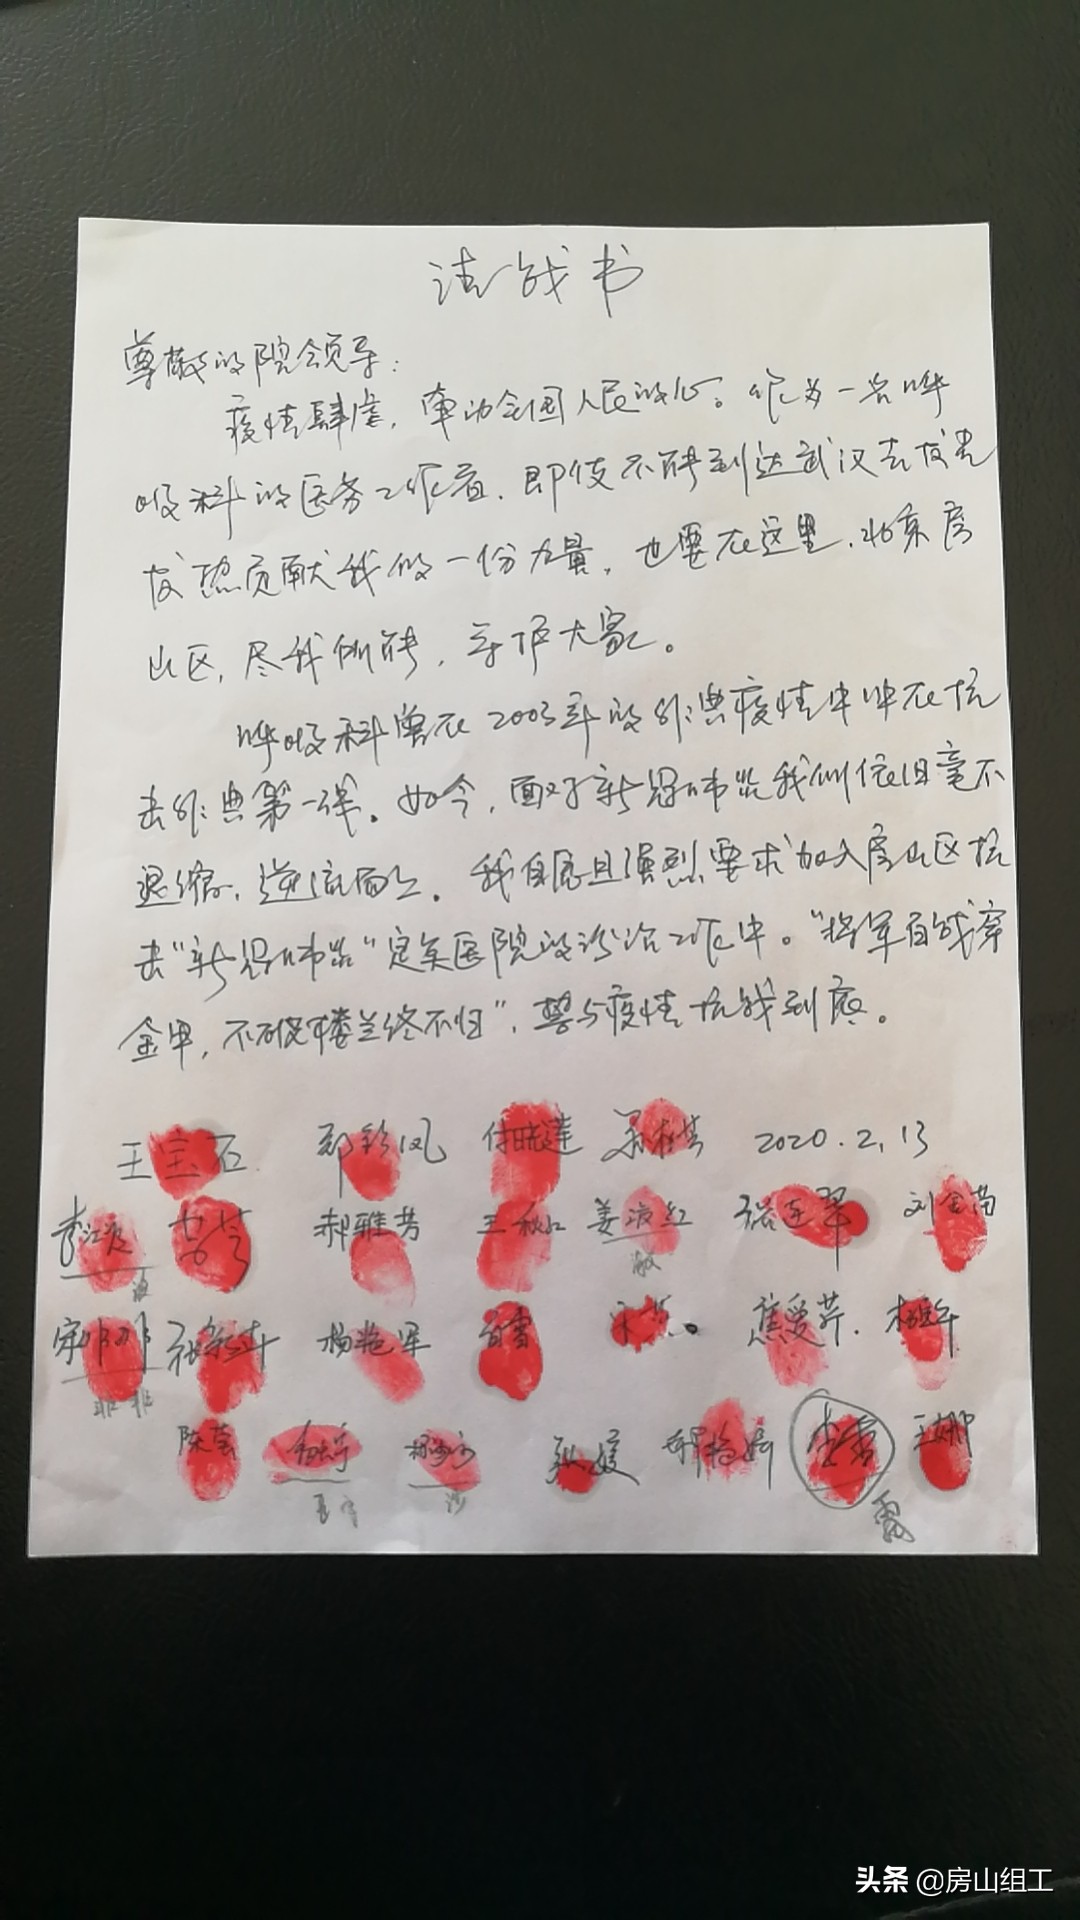 请战书
尊敬的院领导:
疫情肆虐，牵动全国人民的心。作为一名呼
吸科的医务工作者，即使不能到达武汉去发光
发热贡献我的一份力量，也要在这里，北京房
山区，尽我所能，守护大家。
呼吸科曾在2003年的非典疫情中冲在抗
击非典第一线。如今，面对新冠肺炎我们依旧毫不
退缩，逆流而上。我自愿且强烈要求加入房山区抗
击“新冠肺炎”定点医院的诊治工作中。“将军百战穿
金甲，不破楼兰终不归”，誓与疫情抗战到底。
王宝石 郑铃凤 付晓莲 2020.2.13
郝雅芳 王秋红 姜波红 刘金苗
波 微
杨艳军 肖雪 焦爱芹.
菲菲
陈莹 耿媛 王娜
沙
雷
头条 @房山组工